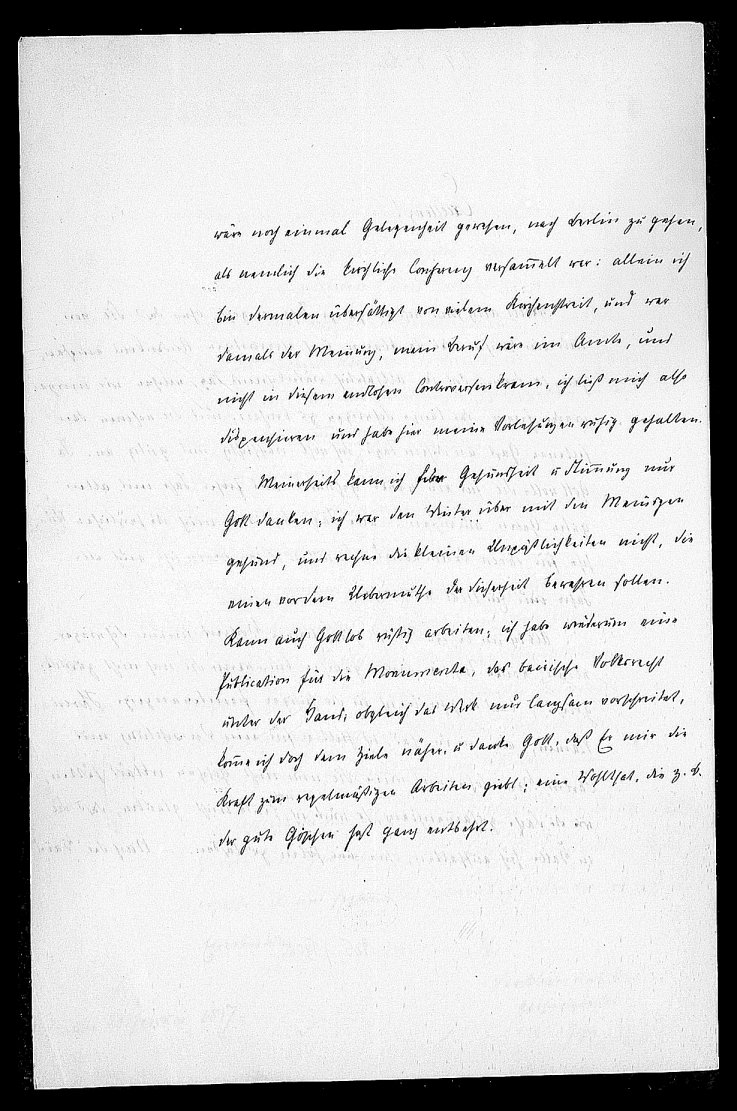 wäre noch einmal Gelegenheit gewesen, nach Berlin zu gehen,
als nemlich die kirchliche Conferenz versam̄elt war: allein ich
bin dermalen übersättigt von vielem Kirchenstreit, und war
damals der Meinung, mein Beruf wäre im Amte, und
nicht in diesem endlosen Controversenkram, ich ließ mich also
dispensieren und habe hier meine Vorlesungen ruhig gehalten.
Meinerseits kann ich für Gesundheit u Stim̄ung nur
Gott danken; ich war den Winter über mit den Meinigen
gesund, und rechne die kleinen Unpäßlichkeiten nicht, die
einen vor dem Uebermuthe der Sicherheit bewahren sollen.
Kann auch Gottlob rüstig arbeiten; ich habe wiederum eine
Publication für die Monumenta, das bairische Volksrecht
unter der Hand; obgleich das Werk nur langsam vorschreitet,
kom̄e ich doch dem Ziele näher, u danke Gott, daß Er mir die
Kraft zum regelmäßigen Arbeiten giebt; eine Wohlthat, die z. B.
der gute Göschen fast ganz entbehrt.